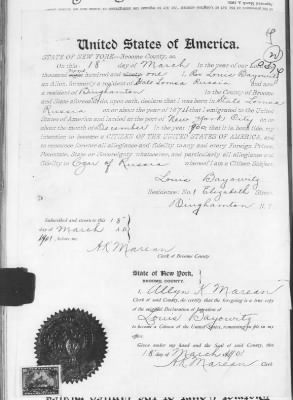 United States of America.
STATE OF NEW YORK—Broome County, ss.
On this 18 day of March in the year of our Lord
hundred and one I, Louis Bayowitz
an Alien, formerly a resident of Russia and now
a resident of Binghamton in the County of Broome
and State aforesaid, upon oath, declare that I was born in
Russia on or about the year of 187 that I emigrated to the United
States of America and landed at the port of New York City on or
about the month of December in the year 1900 that it is bona fide, my
intention to become a CITIZEN OF THE UNITED STATES OF AMERICA, and
to renounce forever all allegiance and fidelity to any and every Foreign Prince,
Potentate, State or Sovereignty whatever, and particularly all allegiance and
fidelity to Czar of Russia of whom I am a Citizen Subject.
Louis Bayowitz
Residence: No. 1 Elizabeth Street,
Binghamton N. Y.
Subscribed and sworn to this 18
day of March A.D.
1901, before me,
A K Marean
Clerk of Broome County
State of New York,
BROOME COUNTY.
I, Allyn K. Marean
Clerk of said County, do certify, that the foregoing is a true copy
of the original Declaration of Intention of
Louis Bayowitz
to become a Citizen of the United States, remaining on file in my
office.
Given under my hand and the Seal of said County, this
18 day of March 1901
A K Marean Clerk